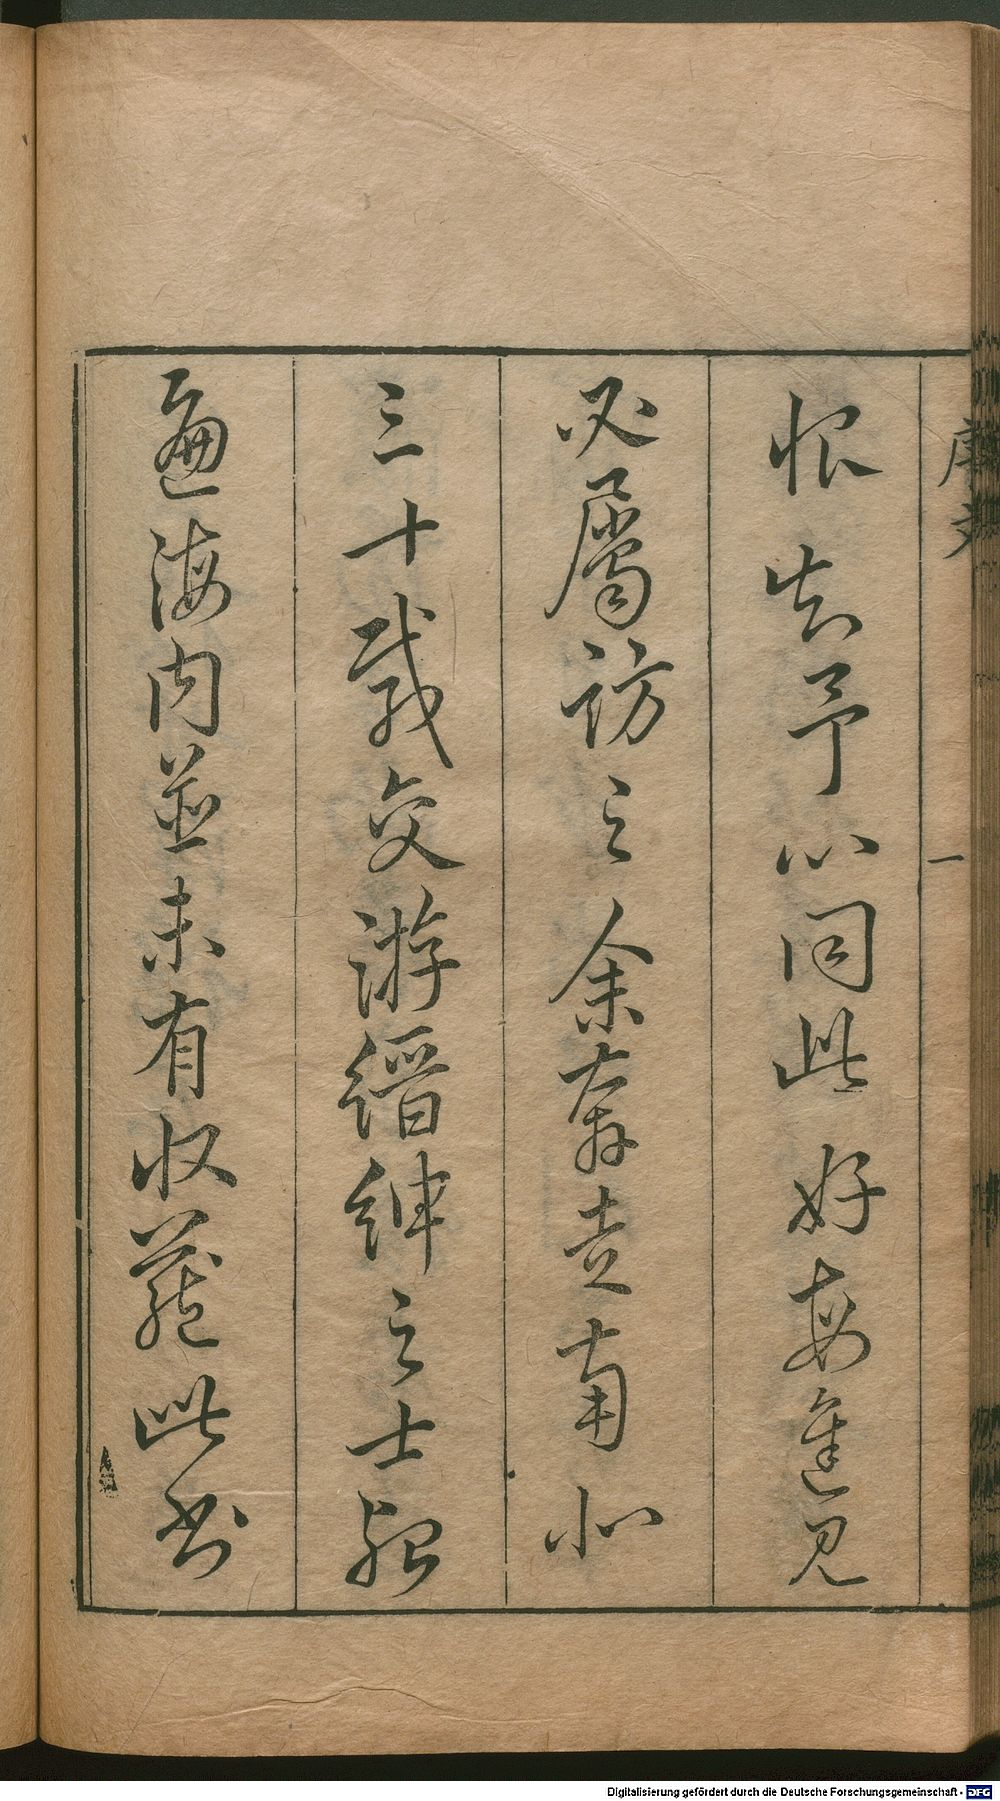 序文
一
恨知予心同此好每進見
必属訪之余奔走南北
三十載交游縉紳之士殆
遍海内並未有収蔵此書
Digitalisierung gefördert durch die Deutsche Forschungsgemeinschaft - DFG